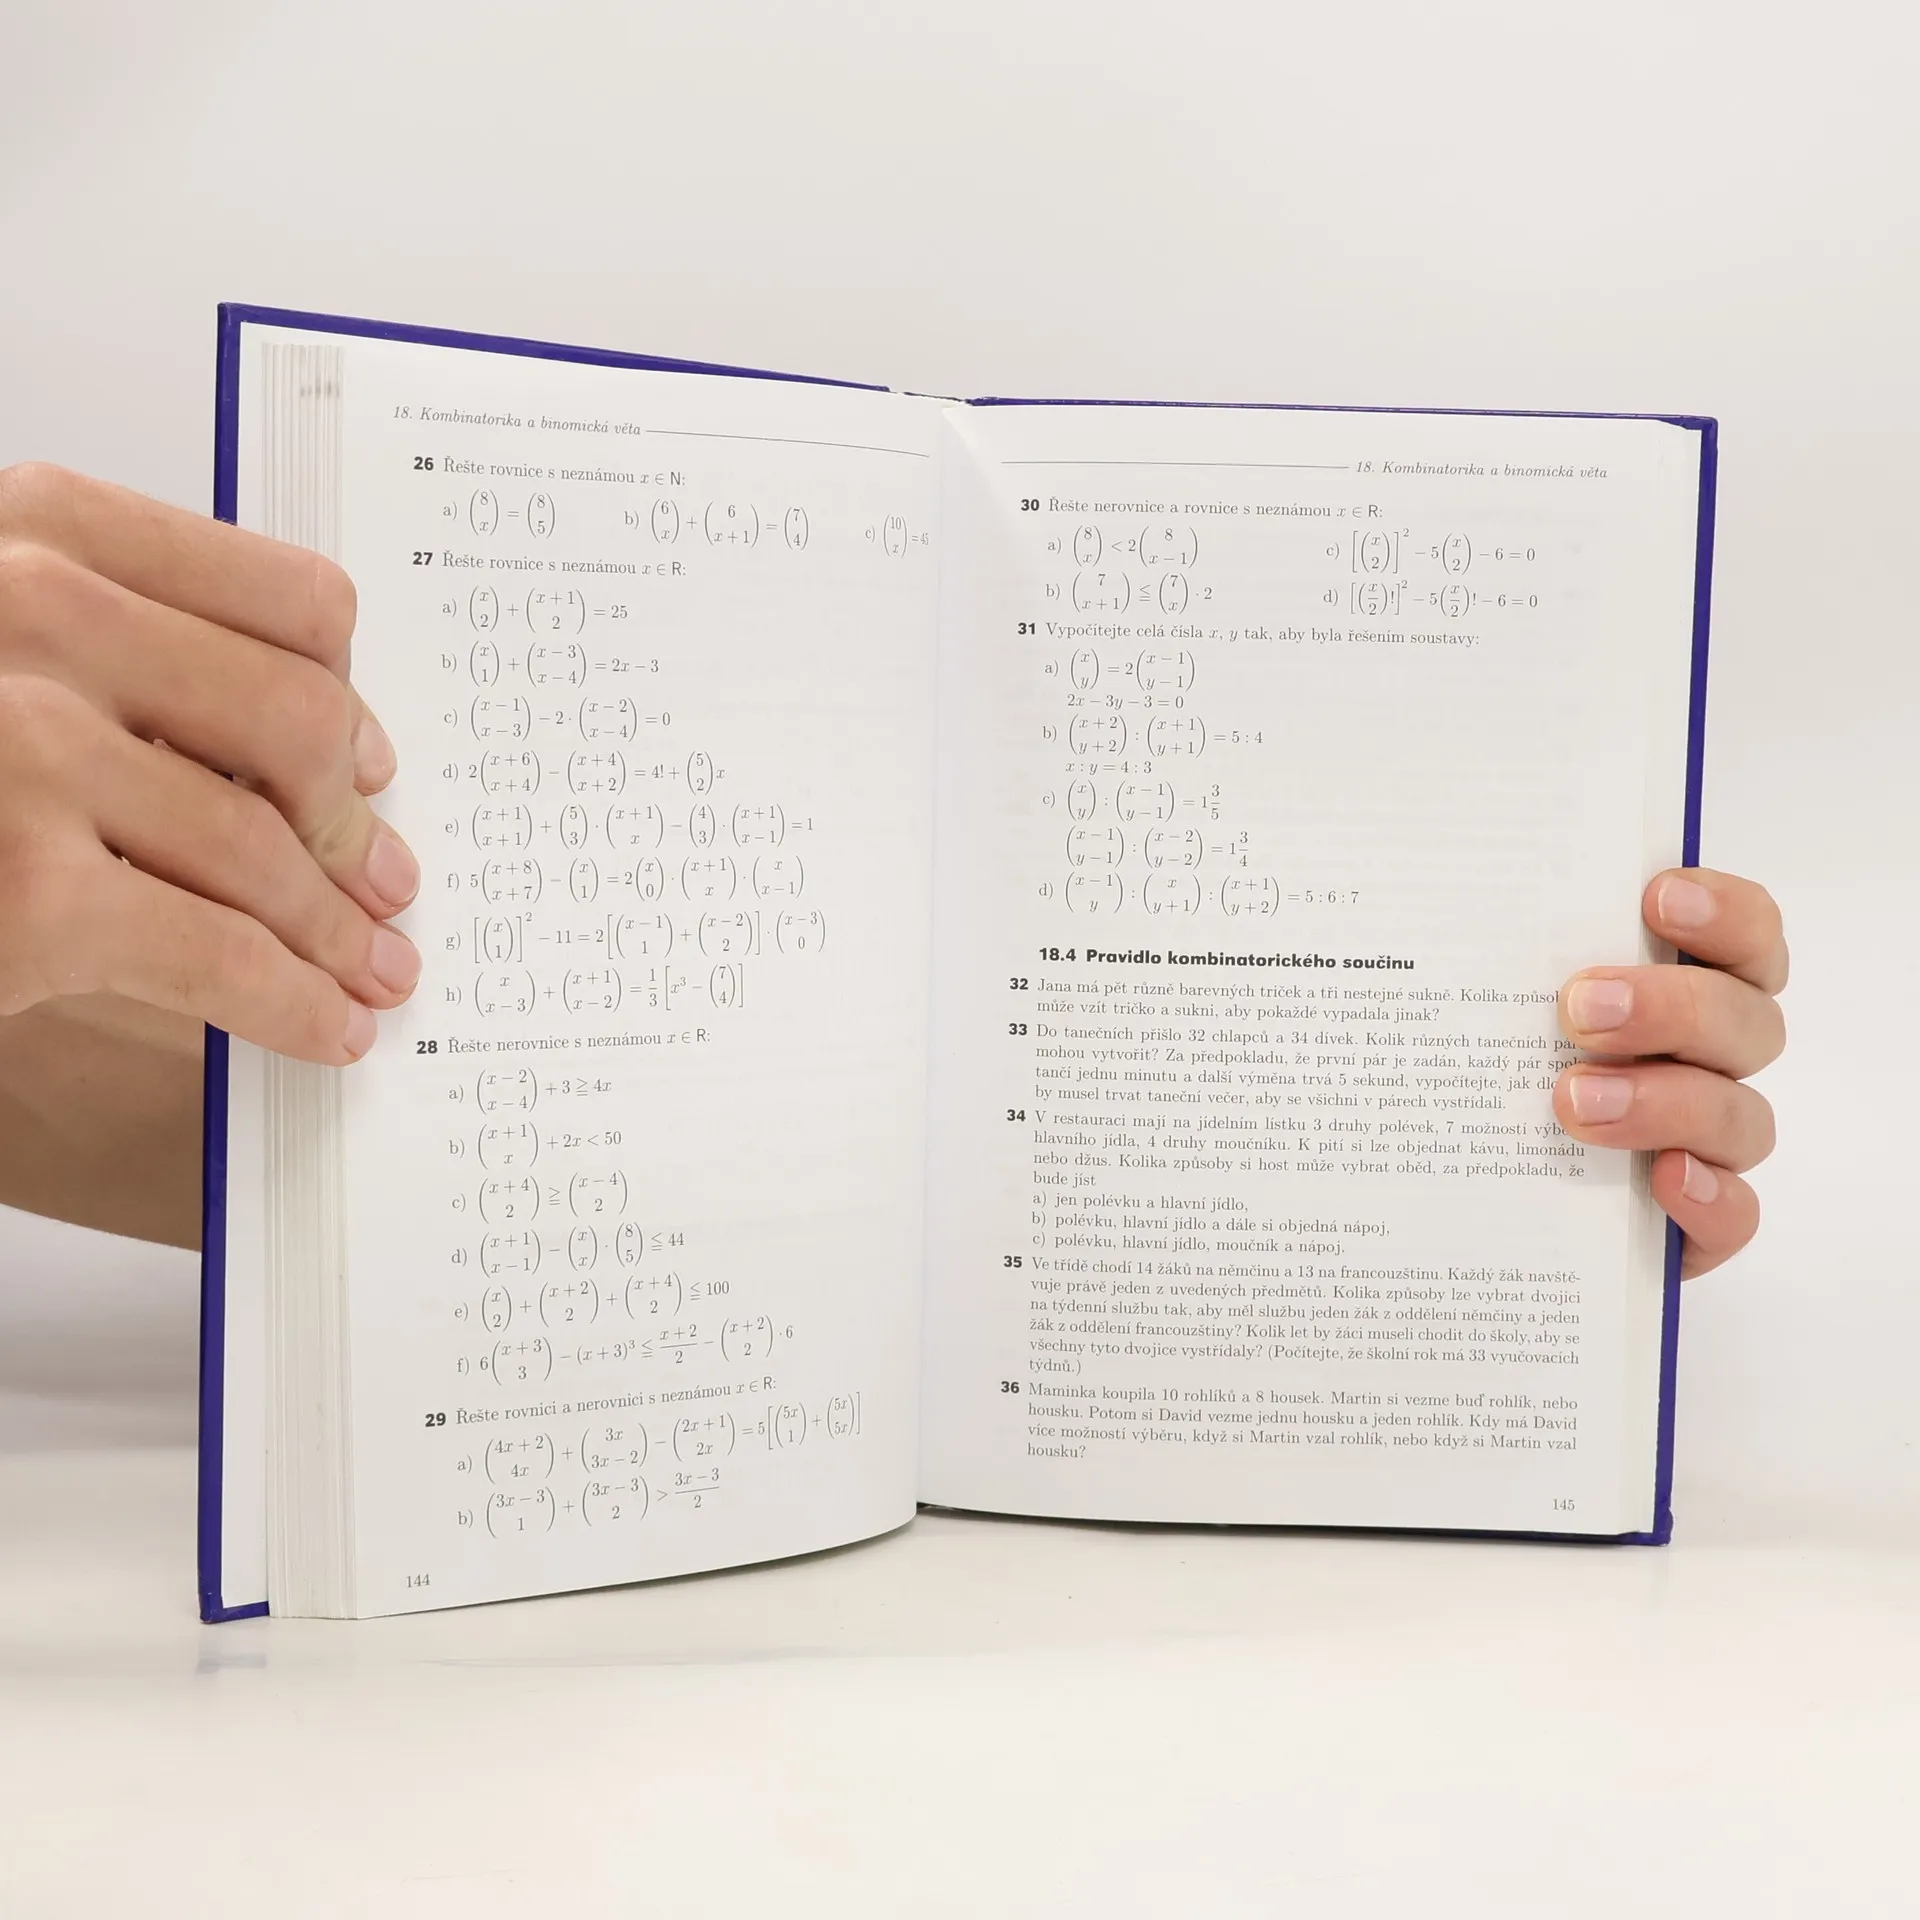 18. Kombinatorika a binomická věta
26 Řešte rovnice s neznámou x ∈ N:
a) (8 x) = (8 5) b) (6 x) + (6 x + 1) = (7 4) c) (10 x) = 45
27 Řešte rovnice s neznámou x ∈ R:
a) (x 2) + (x + 1 2) = 25
b) (x 1) + (x − 3 x − 4) = 2x − 3
c) (x − 1 x − 3) − 2 · (x − 2 x − 4) = 0
d) 2(x + 6 x + 4) − (x + 4 x + 2) = 4! + (5 2)x
e) (x + 1 x + 1) + (5 3) · (x + 1 x) − (4 3) · (x + 1 x − 1) = 1
f) 5(x + 8 x + 7) − (x 1) = 2(x 0) · (x + 1 x) · (x x − 1)
g) [(x 1)]² − 11 = 2[(x − 1 1) + (x − 2 2)] · (x − 3 0)
h) (x x − 3) + (x + 1 x − 2) = 1/3 [x³ − (7 4)]
28 Řešte nerovnice s neznámou x ∈ R:
a) (x − 2 x − 4) + 3 ≧ 4x
b) (x + 1 x) + 2x < 50
c) (x + 4 2) ≧ (x − 4 2)
d) (x + 1 x − 1) − (x x) · (8 5) ≦ 44
e) (x 2) + (x + 2 2) + (x + 4 2) ≦ 100
f) 6(x + 3 3) − (x + 3)³ ≦ x + 2/2 − (x + 2 2) · 6
29 Řešte rovnici a nerovnici s neznámou x ∈ R:
a) (4x + 2 4x) + (3x 3x − 2) − (2x + 1 2x) = 5[(5x 1) + (5x 5x)]
b) (3x − 3 1) + (3x − 3 2) > 3x − 3/2
144
18. Kombinatorika a binomická věta
30 Řešte nerovnice a rovnice s neznámou x ∈ R:
a) (8 x) < 2(8 x − 1) c) [(x 2)]² − 5(x 2) − 6 = 0
b) (7 x + 1) ≦ (7 x) · 2 d) [(x/2)!]² − 5(x/2)! − 6 = 0
31 Vypočítejte celá čísla x, y tak, aby byla řešením soustavy:
a) (x y) = 2(x − 1 y − 1)
2x − 3y − 3 = 0
b) (x + 2 y + 2) : (x + 1 y + 1) = 5 : 4
x : y = 4 : 3
c) (x y) : (x − 1 y − 1) = 1 3/5
(x − 1 y − 1) : (x − 2 y − 2) = 1 3/4
d) (x − 1 y) : (x y + 1) : (x + 1 y + 2) = 5 : 6 : 7
18.4 Pravidlo kombinatorického součinu
32 Jana má pět různě barevných triček a tři nestejné sukně. Kolika
může vzít tričko a sukni, aby pokaždé vypadala jinak?
33 Do tanečních přišlo 32 chlapců a 34 dívek. Kolik různých tanečních
mohou vytvořit? Za předpokladu, že první pár je zadán, každý pár
tančí jednu minutu a další výměna trvá 5 sekund, vypočítejte, jak
by musel trvat taneční večer, aby se všichni v párech vystřídali.
34 V restauraci mají na jídelním lístku 3 druhy polévek, 7 možností
hlavního jídla, 4 druhy moučníku. K pití si lze objednat kávu, limonádu
nebo džus. Kolika způsoby si host může vybrat oběd, za předpokladu, že
bude jíst
a) jen polévku a hlavní jídlo,
b) polévku, hlavní jídlo a dále si objedná nápoj,
c) polévku, hlavní jídlo, moučník a nápoj.
35 Ve třídě chodí 14 žáků na němčinu a 13 na francouzštinu. Každý žák navště-
vuje právě jeden z uvedených předmětů. Kolika způsoby lze vybrat dvojici
na týdenní službu tak, aby měl službu jeden žák z oddělení němčiny a jeden
žák z oddělení francouzštiny? Kolik let by žáci museli chodit do školy, aby se
všechny tyto dvojice vystřídaly? (Počítejte, že školní rok má 33 vyučovacích
týdnů.)
36 Maminka koupila 10 rohlíků a 8 housek. Martin si vezme buď rohlík, nebo
housku. Potom si David vezme jednu housku a jeden rohlík. Kdy má David
více možností výběru, když si Martin vzal rohlík, nebo když si Martin vzal
housku?
145